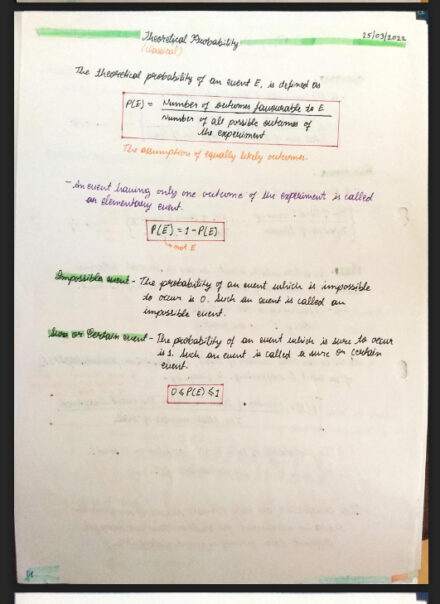 Theoretical Probability
25/03/2022
(classical)
The theoretical probability of an event E, is defined as
P(E) = Number of outcomes favourable to E
Number of all possible outcomes of
the experiment
The assumption of equally likely outcomes.
- An event having only one outcome of the experiment is called
an elementary event.
P(E) = 1 - P(E)
→ not E
Impossible event - The probability of an event which is impossible
to occur is 0. Such an event is called an
impossible event.
Sure or Certain event - The probability of an event which is sure to occur
is 1. Such an event is called a sure or certain
event.
0 ≤ P(E) ≤ 1